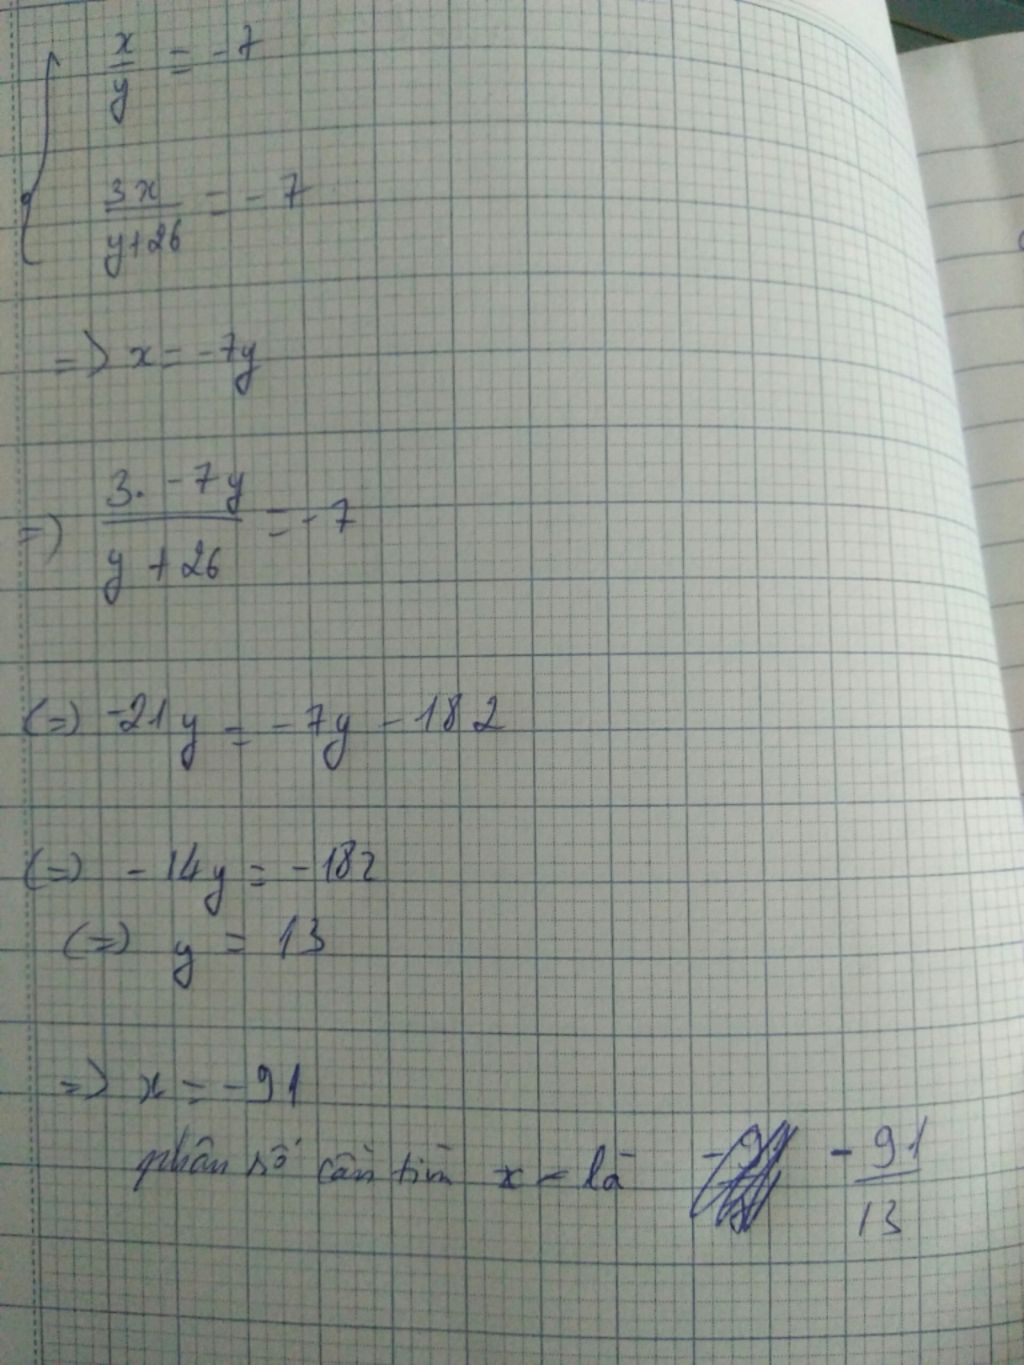 x/y = -7
3x/(y+26) = -7
=> x = -7y
=> (3. -7y)/(y + 26) = -7
(=) -21y = -7y - 182
(=) - 14y = -182
(=) y = 13
=> x = -91
phân số cần tìm x = là - 91/13